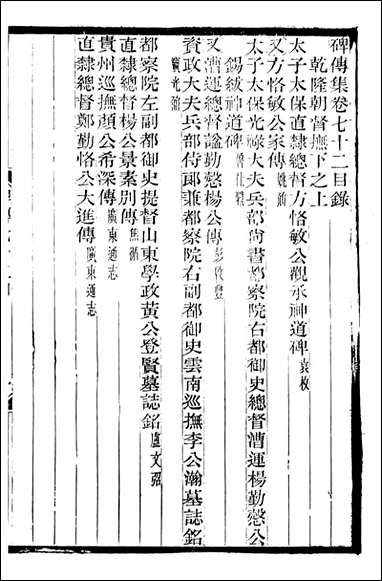 碑傳集卷七十二目錄
乾隆朝督撫下之上
太子太保直隸總督方恪敏公觀承神道碑 袁枚
又方恪敏公家傳 姚鼐
太子太保光祿大夫兵部尚書都察院右都御史總督漕運楊勤慤公
錫紱神道碑
又漕運總督謚勤慤楊公傳 彭啟豐
資政大夫兵部侍郎兼都察院右副都御史雲南巡撫李公瀚墓誌銘
都察院左副都御史提督山東學政黃公登賢墓誌銘 盧文弨
直隸總督楊公景素別傳 焦循
貴州巡撫顏公希深傳 廣東通志
直隸總督鄭勤恪公大進傳 廣東通志